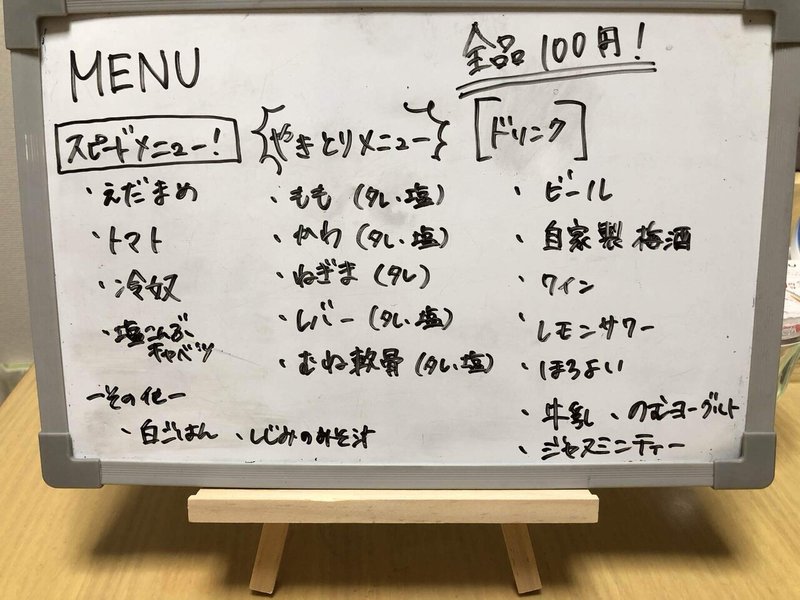 MENU
全品100円!
スピードメニュー!
・えだまめ
・トマト
・冷奴
・塩こんぶ
キャベツ
ーその他ー
・白ごはん ・しじみのみそ汁
やきとりメニュー
・もも (タレ・塩)
・かわ (タレ・塩)
・ねぎま (タレ)
・レバー (タレ・塩)
・むね軟骨 (タレ・塩)
[ドリンク]
・ビール
・自家製梅酒
・ワイン
・レモンサワー
・ほろよい
・牛乳 ・のむヨーグルト
・ジャスミンティー